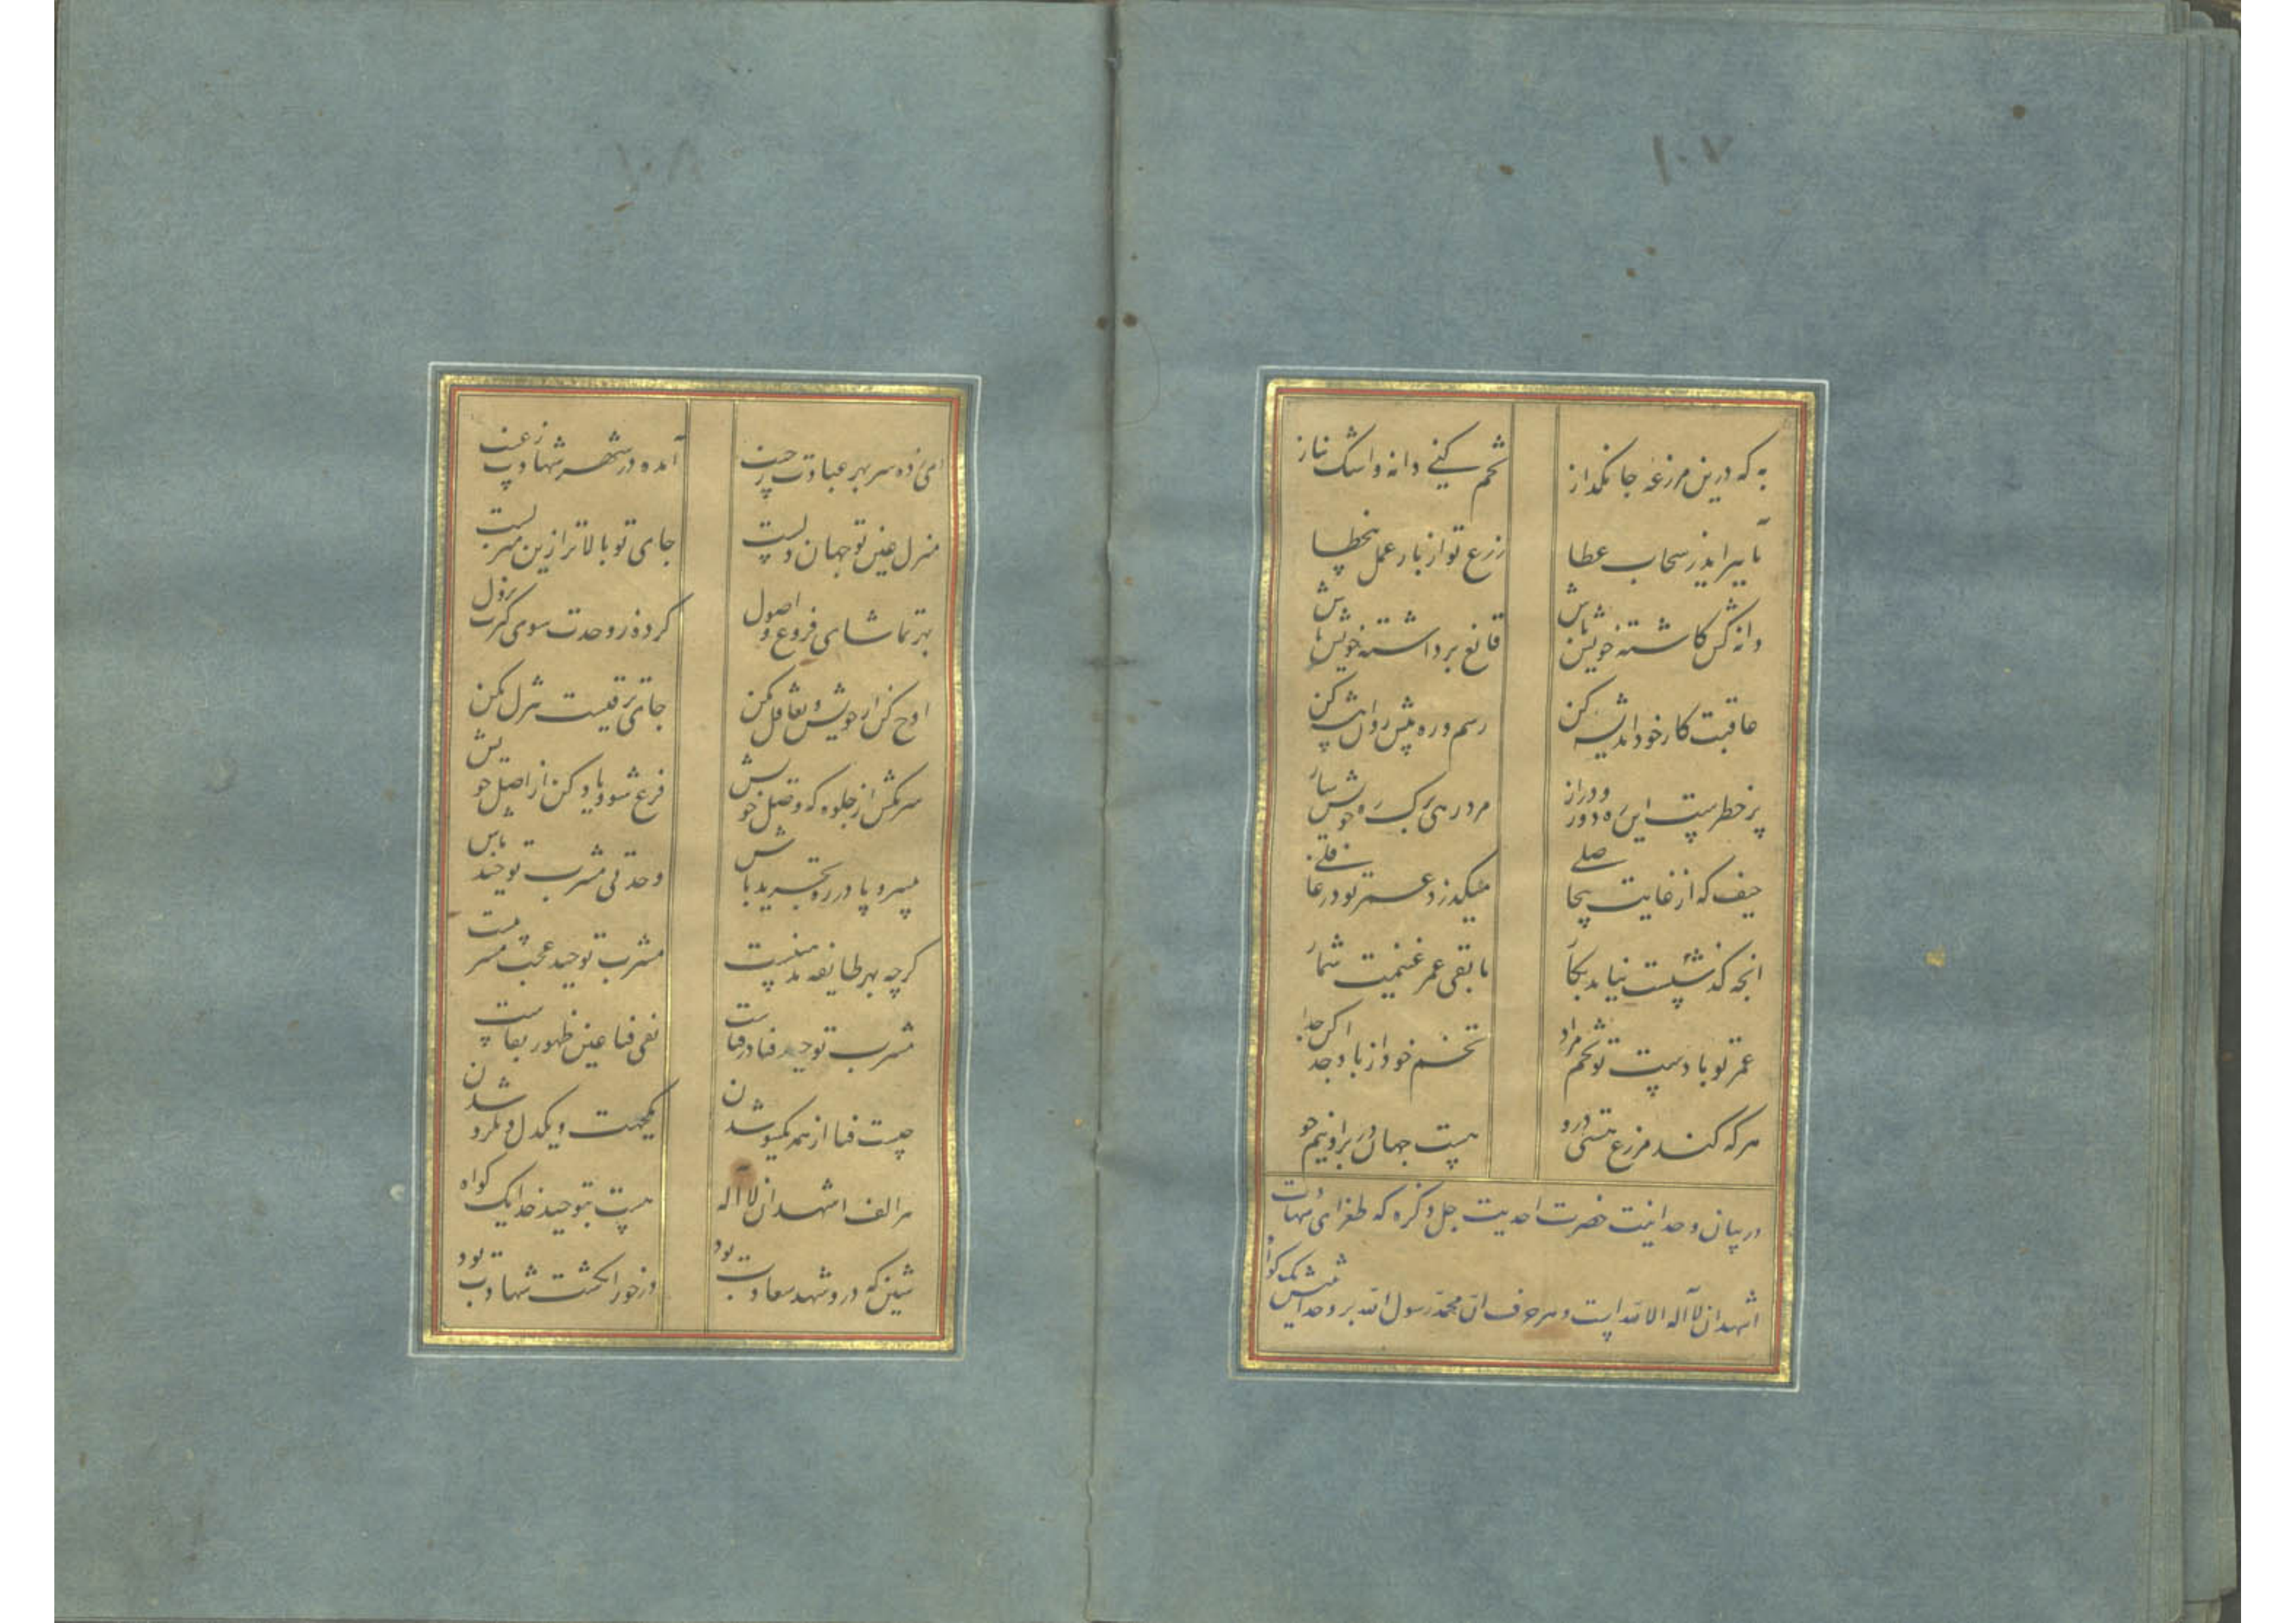 ۱۰۷
به که درین مرزعه جانگداز تخم کنے دانه واشک نیاز
تا بپرایدز سحاب عطا زرع تو از بار عمل بخطا
دانه کش کاشته خویش باش قانع برداشته خویش باش
عاقبت کار خود اندیشه کن رسم و ره پیش روان پیشه کن
پر خطرست این ره دور و دراز مرد رهی برک ره خویش ساز
حیف که از غایت بیحاصلے میکذرد عمر تو در غافلے
انچه کذشتست نیاید بکار مابقی عمر غنیمت شمار
عمر تو بادست تو تخم مراد تخم خود از باد جدا کن جدا
هر که کند مزرع هستی درو هست جهان در بر او نیم جو
در بیان وحدانیت حضرت احدیت جل ذکره که طغرای شهادت
اشهد ان لا اله الا الله است و هر حرف ان محمد رسول الله بر وحدانیتش یک کواه
۱۰۸
ای زده سر بهر عبادت ز جیب آمده در شهر شهادت ز غیب
منزل عین تو جهان دلست جای تو بالاتر ازین منزلست
بهر تماشای فروع و اصول کرده ز وحدت سوی کثرت نزول
اوج کن از خویش و تغافل مکن جای ترقیست تنزل مکن
سر مکش از جلوه که وصل خویش فرع شو و یاد کن از اصل خویش
بیسر و پا در ره تجرید باش وحدتی مشرب توحید باش
کرچه بهر طایفه مذهبیست مشرب توحید عجب مشربیست
مشرب توحید فنا در فناست نفی فنا عین ظهور بقاست
چیست فنا از همه یکسو شدن یکجهت و یکدل و یکرو شدن
هر الف اشهد ان لا اله هست بتوحید خدا یک کواه
شین که درو شهد سعادت بود در خور انکشت شهادت بود